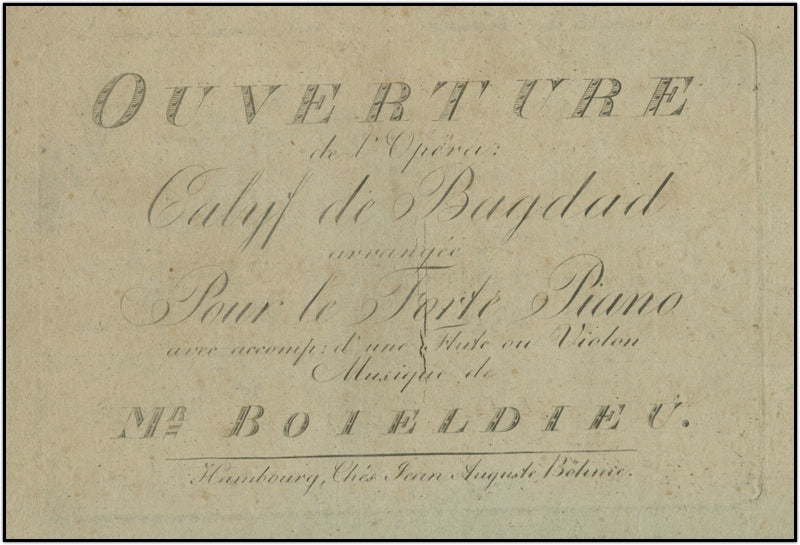 OUVERTURE
de l'Opéra:
Calyf de Bagdad
arrangée
Pour le Forte Piano
avec accomp: d'une Flute ou Violon
Musique de
MR BOIELDIEU.
Hambourg, Chés Jean Auguste Böhme.